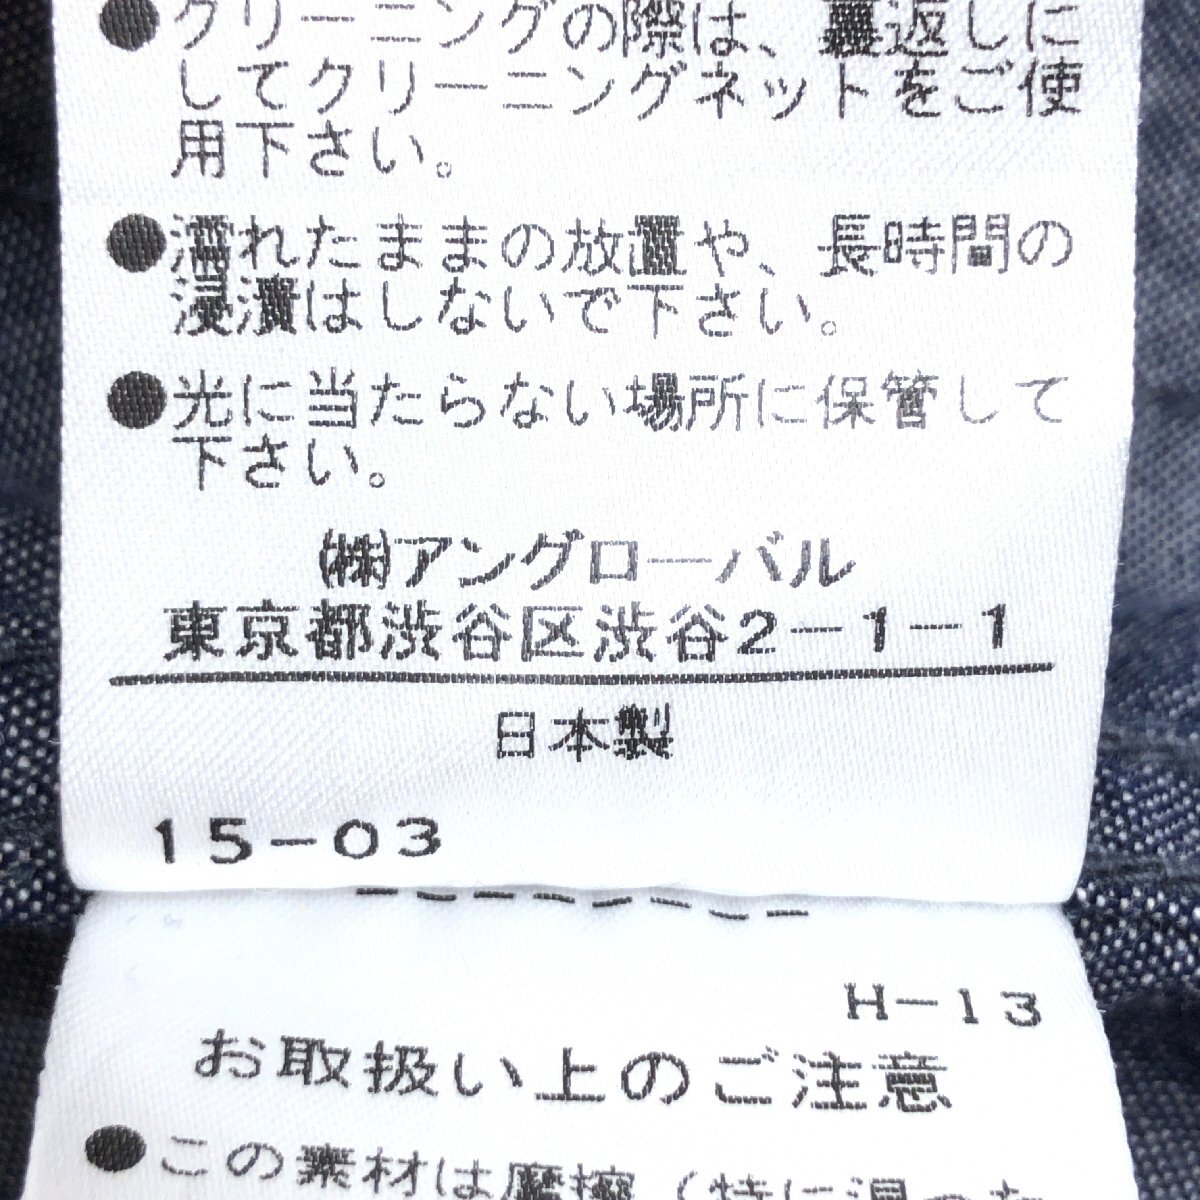 ●クリーニングの際は、裏返しに
してクリーニングネットをご使
用下さい。
●濡れたままの放置や、長時間の
浸漬はしないで下さい。
●光に当たらない場所に保管して
下さい。
㈱アングローバル
東京都渋谷区渋谷2-1-1
日本製
15-03
H-13
お取扱い上のご注意
●この素材は摩擦(特に湿った